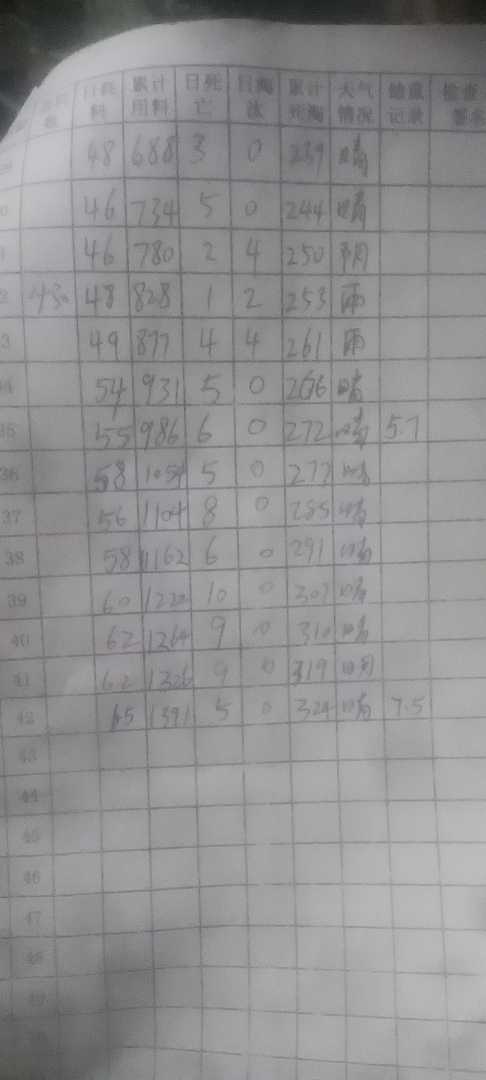 日耗料 累计用料 日死亡 日淘汰 累计死淘 天气情况 储蓄记录 检查签名
48 688 3 0 239 晴
46 734 5 0 244 晴
46 780 2 4 250 阴
430 48 828 1 2 253 雨
3 49 877 4 4 261 雨
54 931 5 0 266 晴
35 55 986 6 0 272 晴 5.7
36 58 5 0 277 晴
37 56 1104 8 0 285 晴
38 58 1162 6 0 291 晴
39 60 1222 10 0 301 晴
40 62 1264 9 0 310 晴
41 62 1326 9 0 319 阴
42 65 1391 5 0 324 晴 7.5
43
44
45
46
47
48
49